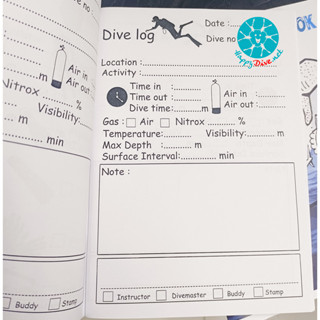 Dive log
Date :
Dive no :
Happy Dive.net
Location :
Activity :
Time in :
Time out :
Dive time: m
Air in :
Air out :
Gas : Air Nitrox %
Temperature: Visibility: m
Max Depth : m
Surface Interval: min
Note :
Instructor Divemaster Buddy Stamp
Dive no :
m
Air in :
Air out :
Nitrox %
Visibility: m
m
min
Buddy Stamp